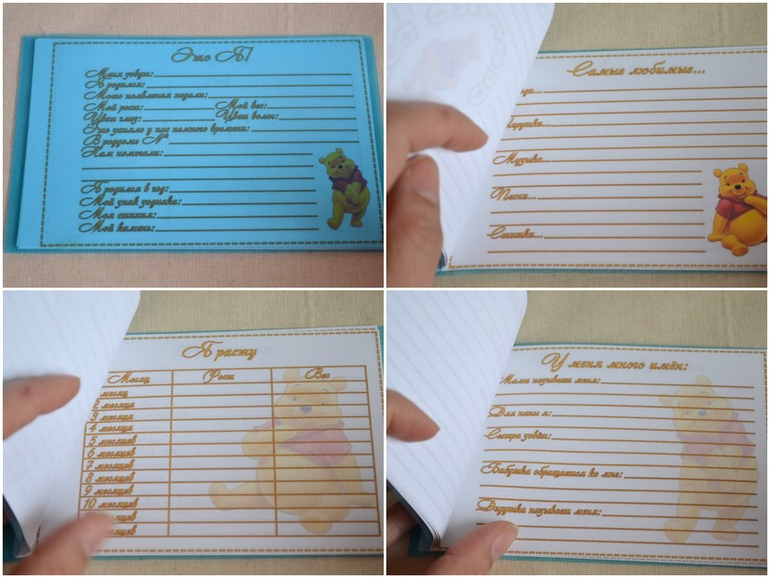 Это Я!
Меня зовут:
Я родился:
Моего появления ждали:
Мой рост: Мой вес:
Цвет глаз: Цвет волос:
Это заняло у нас полного времени:
В роддоме №
Нам помогали:
Я родился в год:
Мой знак зодиака:
Моя стихия:
Мой камень:
Самые любимые...
Музыка...
Песни...
Я расту
Месяц Рост Вес
месяц
2 месяца
3 месяца
4 месяца
5 месяцев
6 месяцев
7 месяцев
8 месяцев
9 месяцев
10 месяцев
У меня много имён:
Мама называет меня:
Для папы я:
Сестра зовёт:
Бабушка обращается ко мне:
Дедушка называет меня: